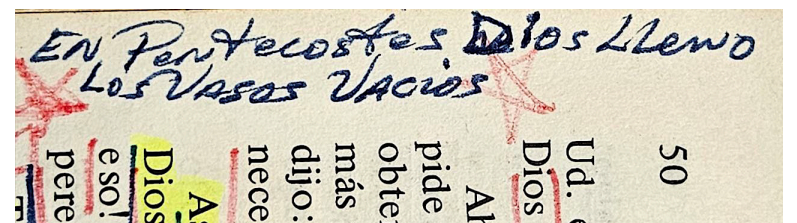 EN Pentecostes Dios LLeno
Los VASOS VACIOS
50
Ud. e
Dios
pide
obte
más
dijo:
nece
A
Dios
eso!
pere